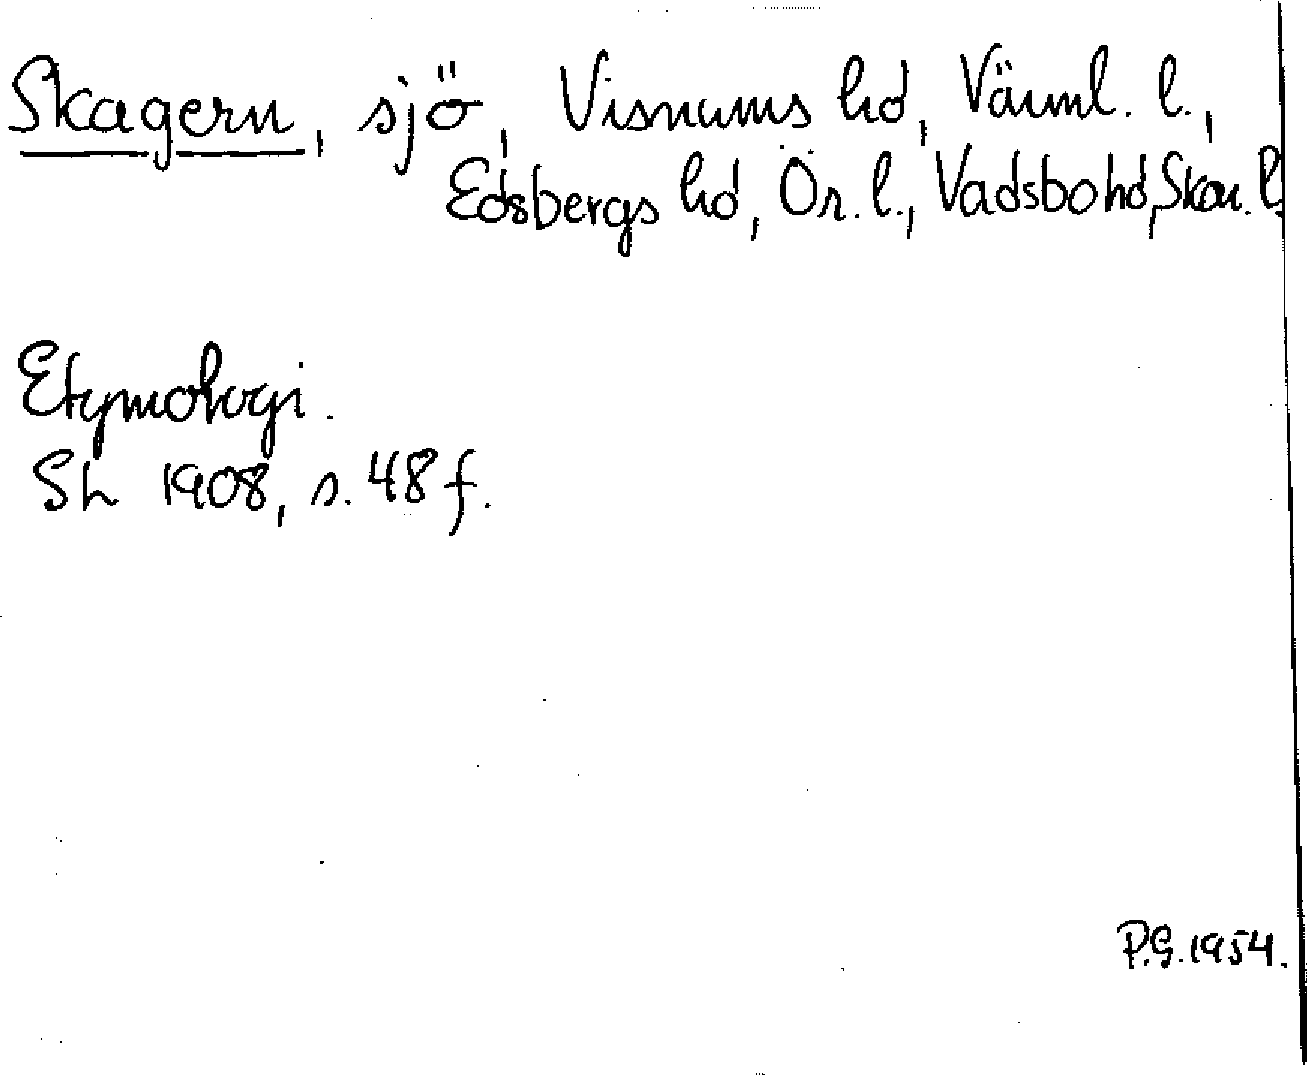 Skagern, sjö, Visnums hd, Värml. l.,
Edsbergs hd, Ör. l., Vadsbo hd, Skar. l.
Etymologi.
Sh 1908, s. 48 f.
P.G. 1954.